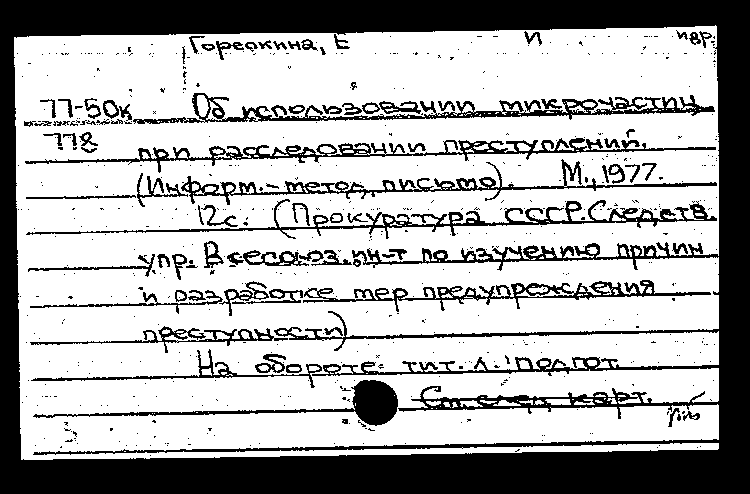 Гореокина, Е И пер.
77-50к Об использовании микрочастиц
778 при расследовании преступлений.
(Информ.-метод. письмо). М., 1977.
12с. (Прокуратура СССР. Следств.
упр. Всесоюз. ин-т по изучению причин
и разработке мер предупреждения
преступности)
На обороте тит. л.: подгот.
См. след. карт.